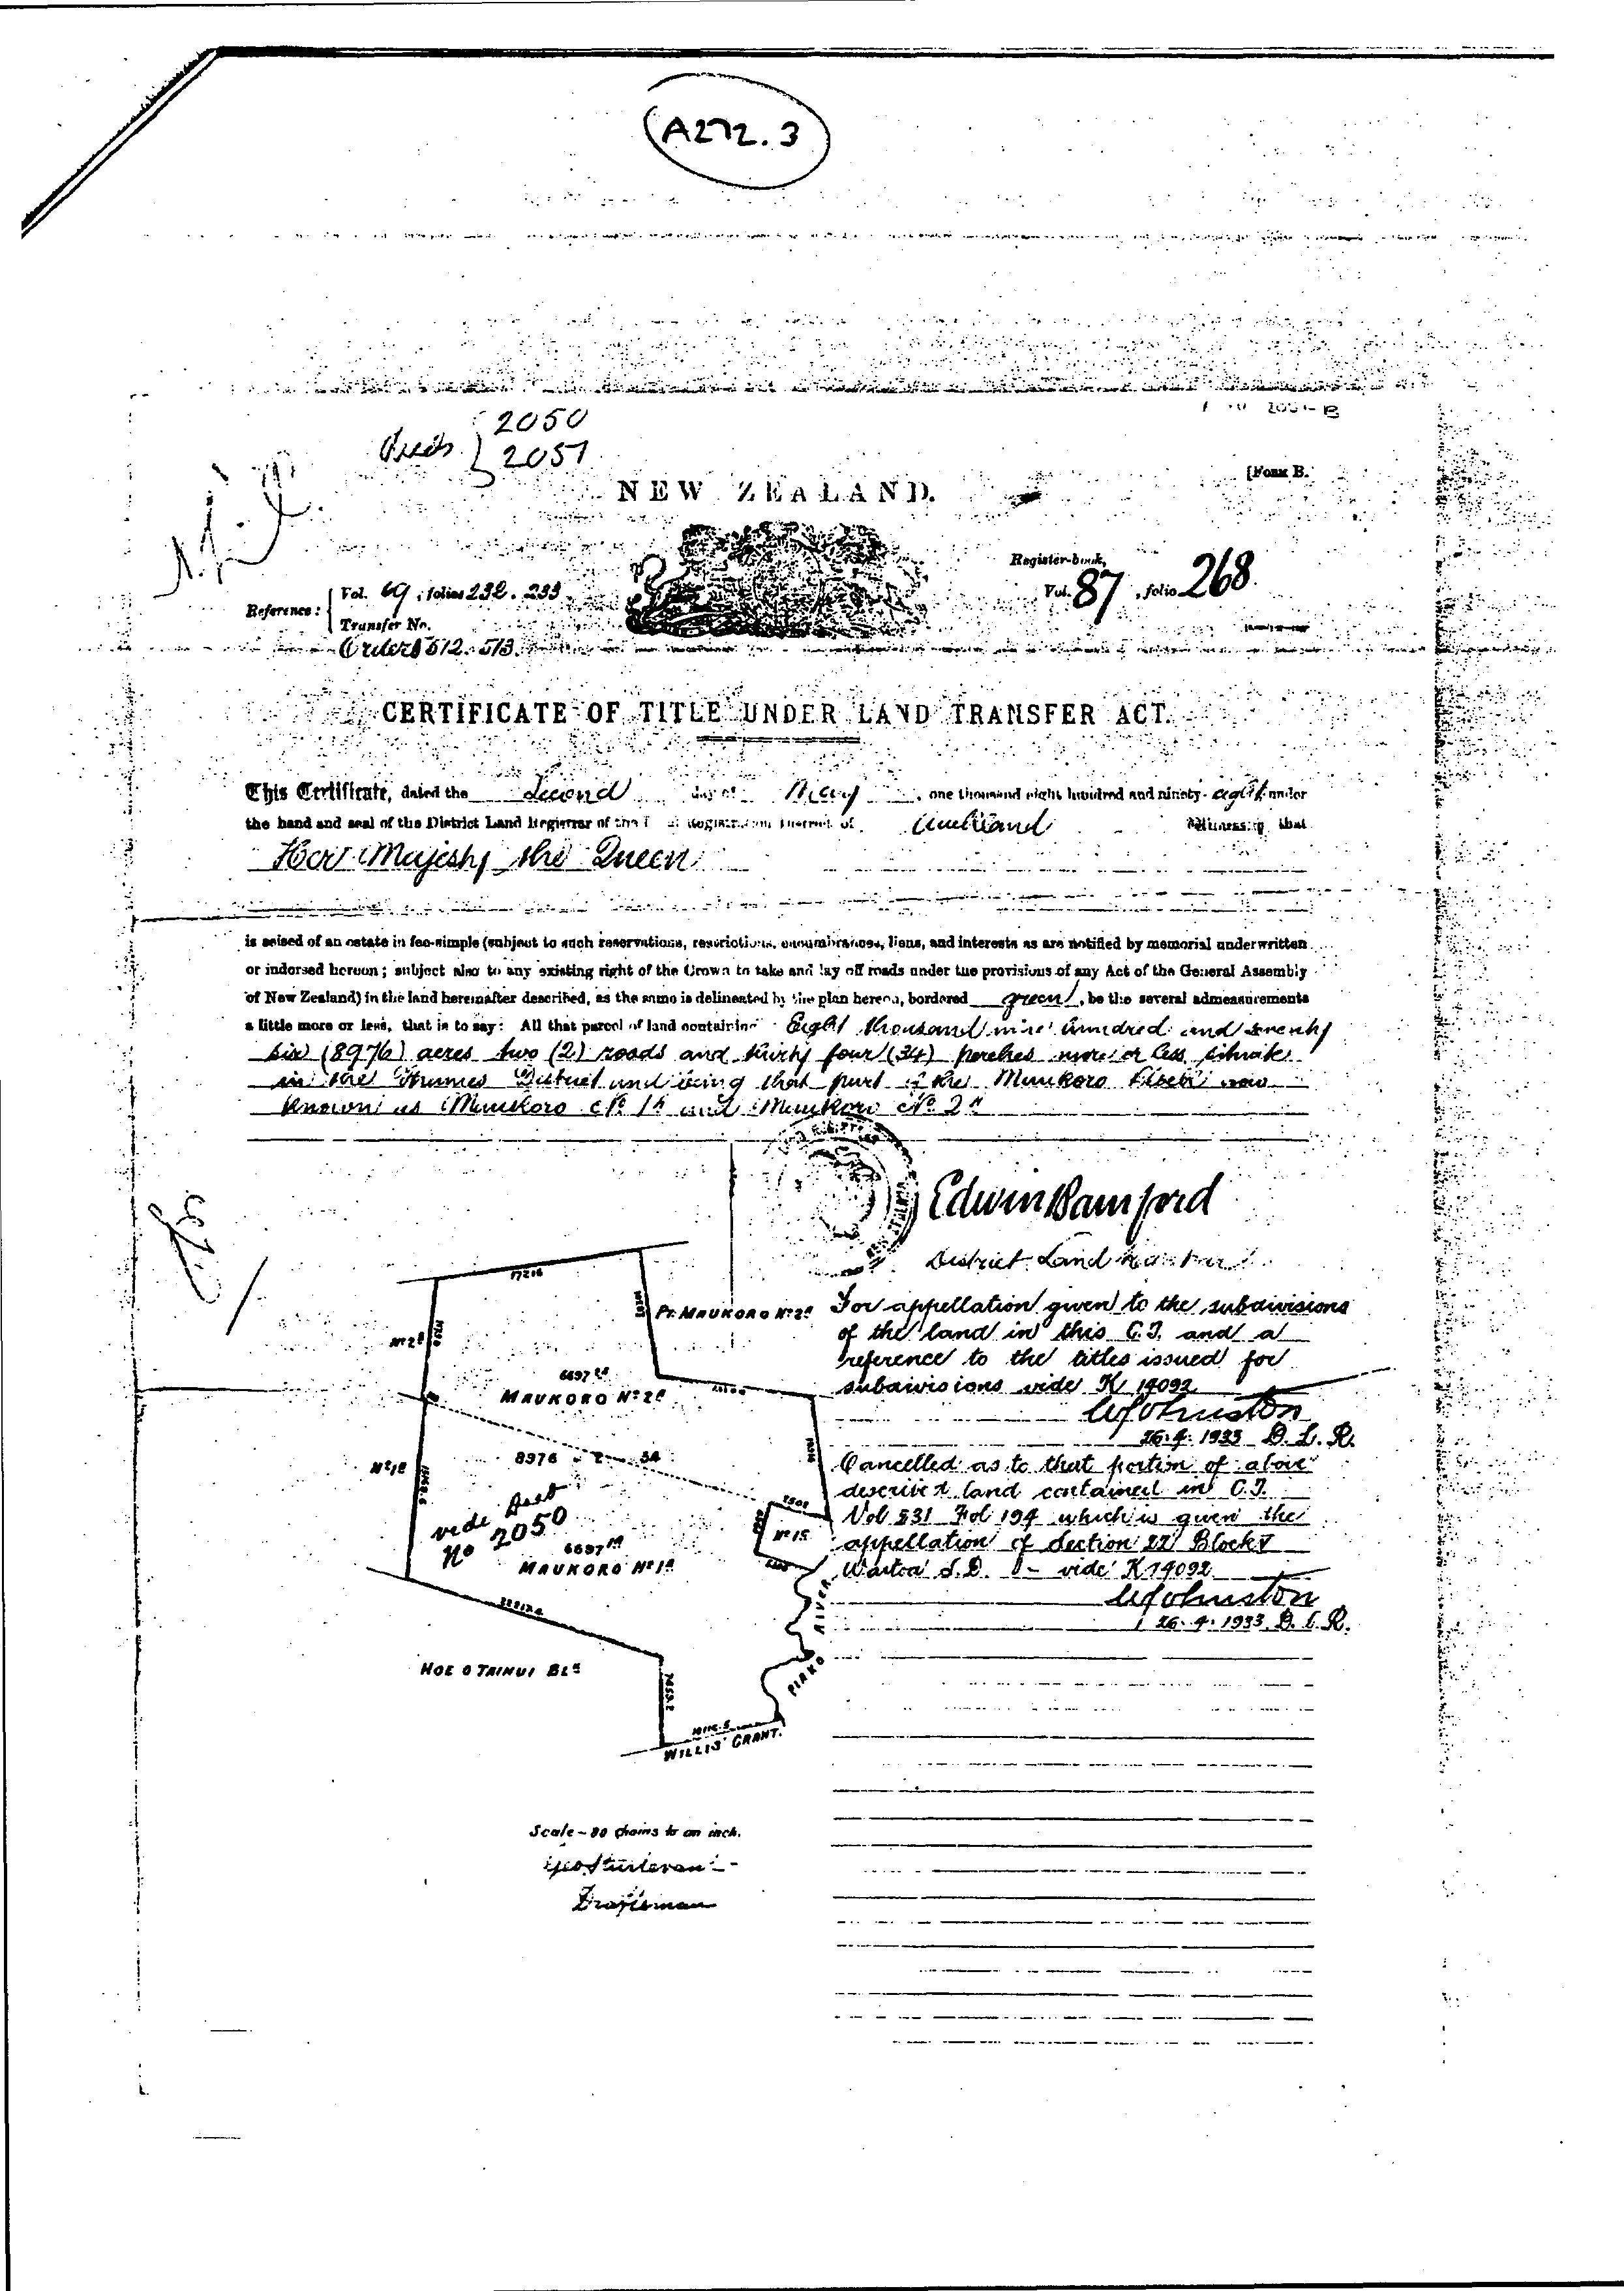 A272.3
Deeds { 2050
2051
[FORM B.
NEW ZEALAND.
Register-book,
Vol. 87, folio 268
Reference: Vol. 69, folios 232. 233
Transfer No.
Orders 512. 513.
CERTIFICATE OF TITLE UNDER LAND TRANSFER ACT.
This Certificate, dated the Second day of May, one thousand eight hundred and ninety-eight under
the hand and seal of the District Land Registrar of the Registration District of Auckland Witnesseth that
Her Majesty the Queen
is seised of an estate in fee-simple (subject to such reservations, restrictions, encumbrances, liens, and interests as are notified by memorial underwritten
or indorsed hereon; subject also to any existing right of the Crown to take and lay off roads under the provisions of any Act of the General Assembly
of New Zealand) in the land hereinafter described, as the same is delineated by the plan hereon, bordered green, be the several admeasurements
a little more or less, that is to say: All that parcel of land containing Eight thousand nine hundred and seventy
six (8976) acres two (2) roods and thirty four (34) perches more or less situate
in the Thames District and being that part of the Maukoro Block now
known as Maukoro No 1A and Maukoro No 2A
Edwin Bamford
District Land Registrar
17216
Pt. MAUKORO No 2A
No 2B
6697
MAUKORO No 2A
8976 - 2 - 34
No 1B
vide Deed
No 2050
6697
MAUKORO No 1A
No 1C
PIAKO RIVER
HOE O TAINUI BLK
WILLIS' GRANT.
Scale - 80 Chains to an inch.
Draftsman
For appellation given to the subdivisions
of the land in this C.T. and a
reference to the titles issued for
subdivisions vide K 14092
W Johnston
26.4.1933 D.L.R.
Cancelled as to that portion of above
described land contained in C.T.
Vol 531 Fol 194 which is given the
appellation of Section 22 Block V
Waitoa S.D. - vide K14092
W Johnston
26.4.1933 D.L.R.